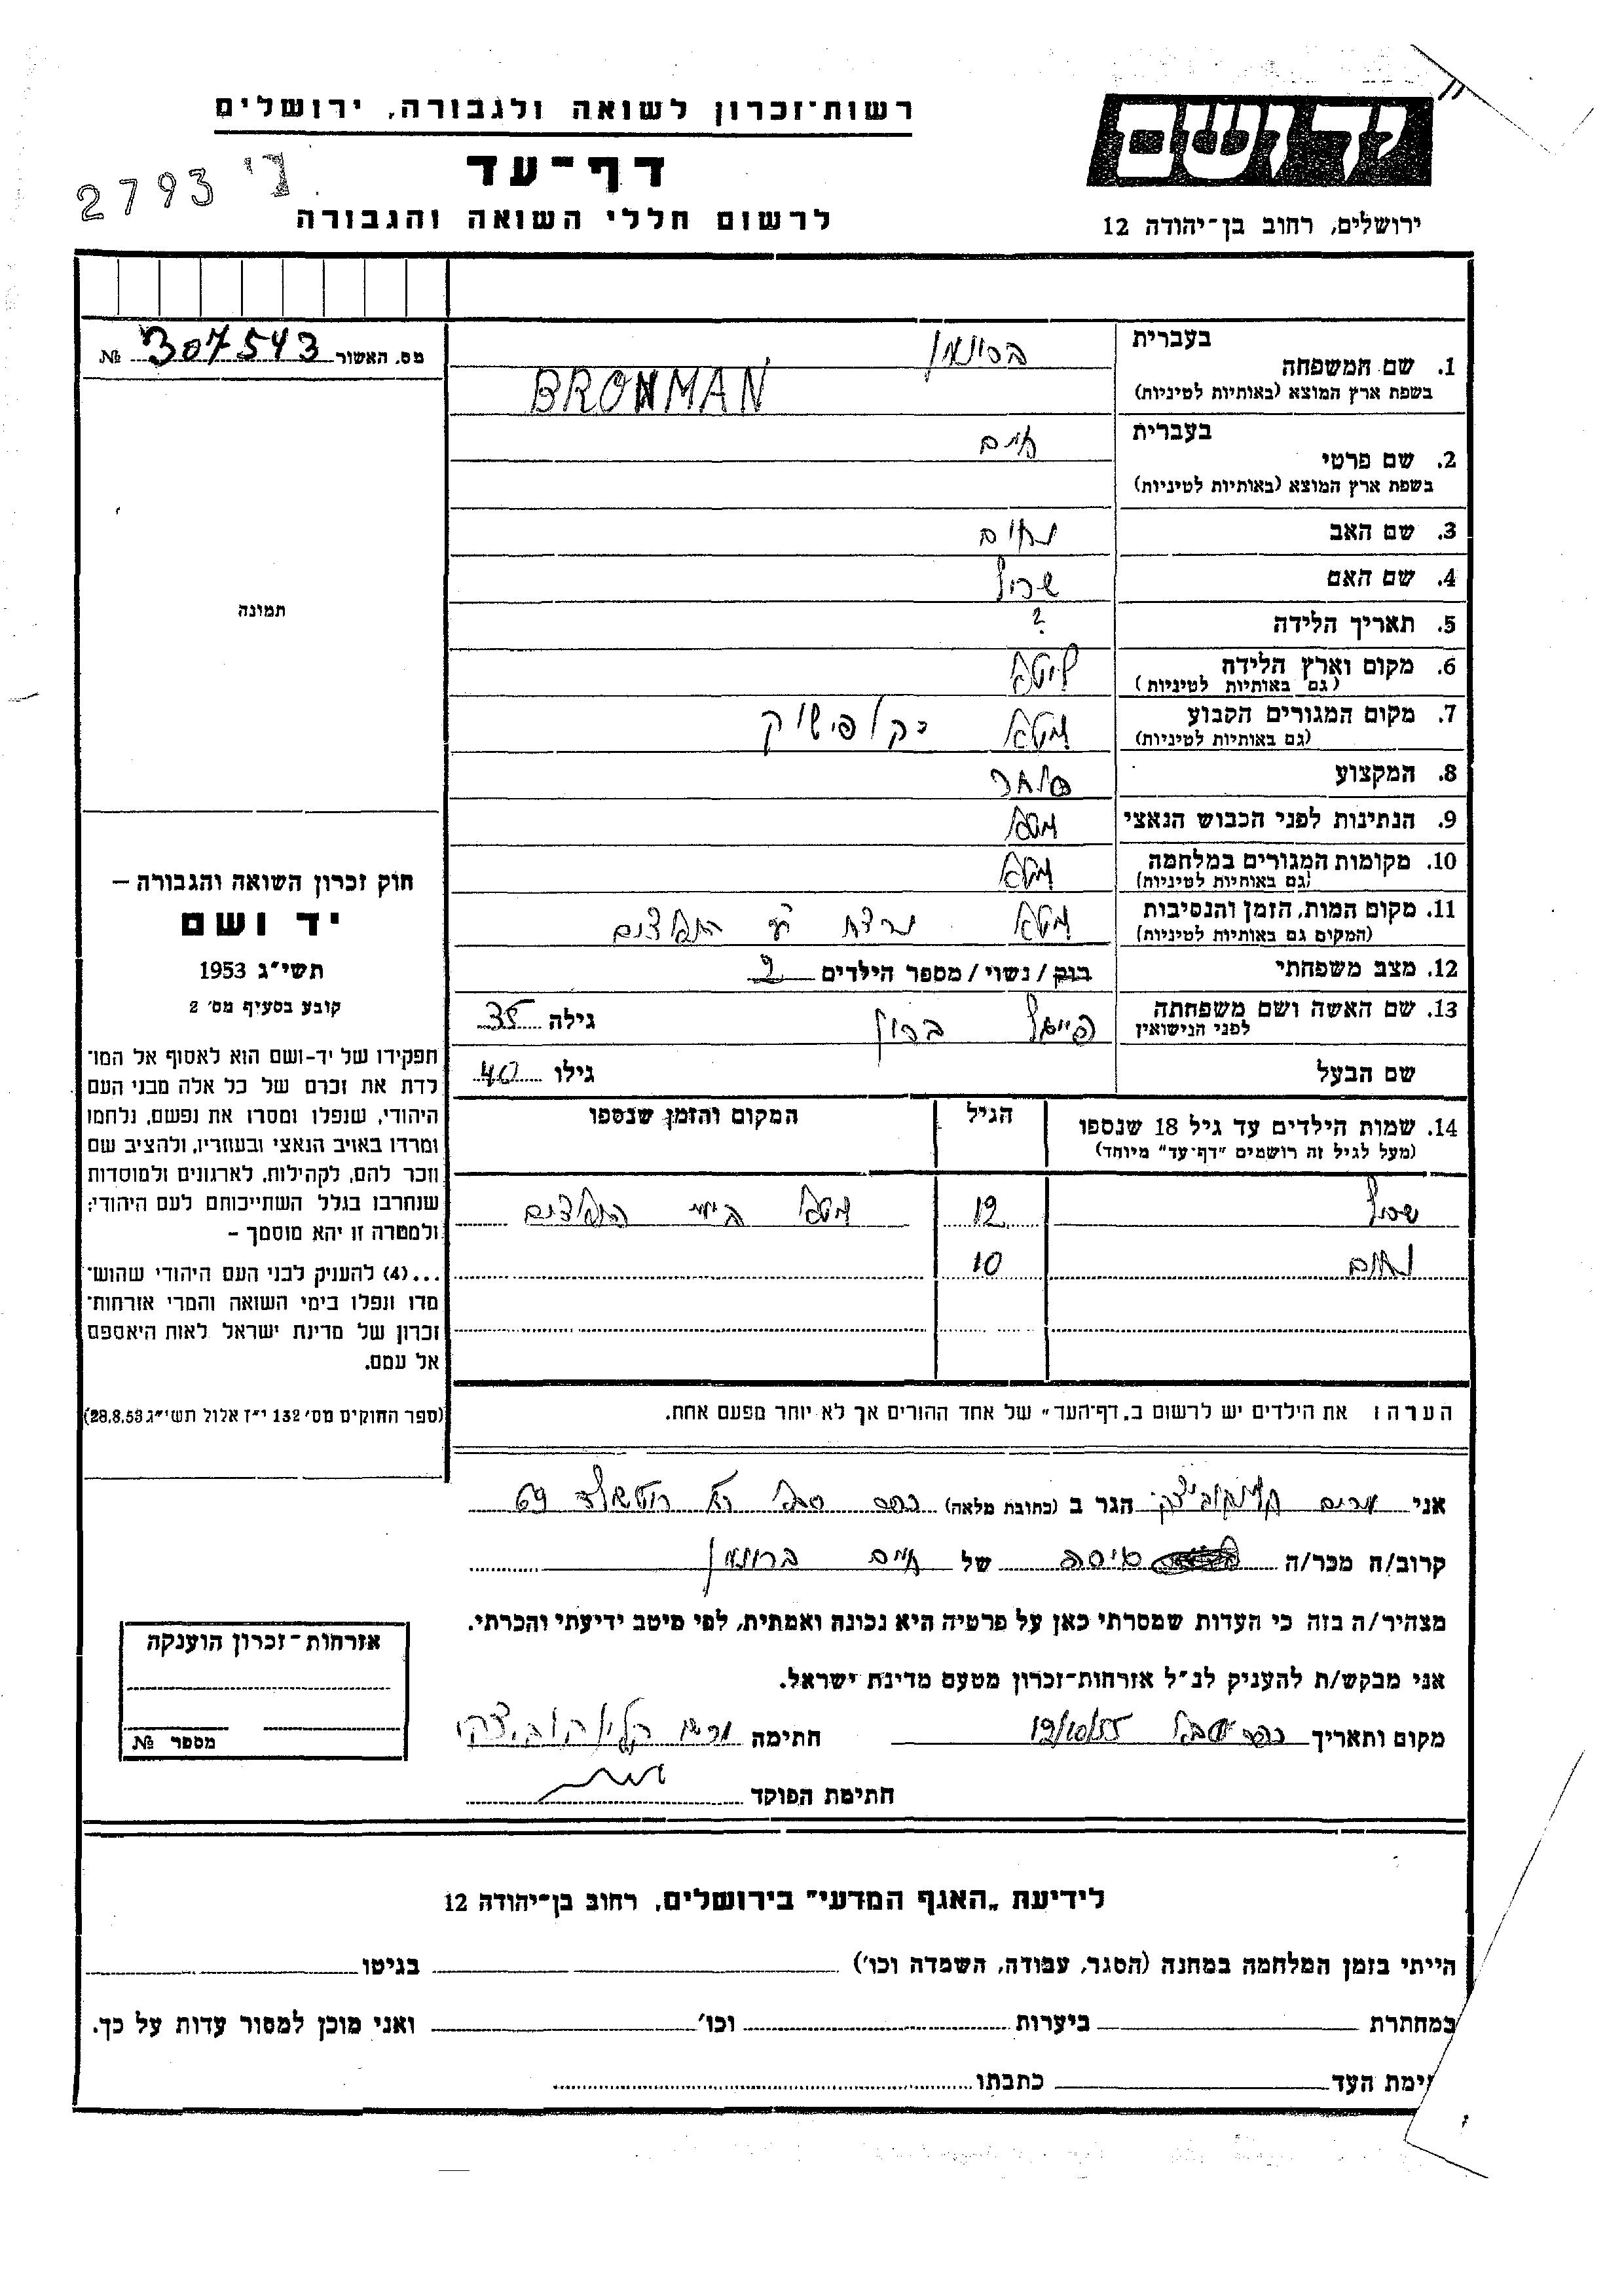 יד ושם
ירושלים, רחוב בן-יהודה 12
רשות-זכרון לשואה ולגבורה, ירושלים
דף-עד
לרשום חללי השואה והגבורה
2793
מס. האשור 307543 №
1. שם המשפחה
בעברית ברונמן
בשפת ארץ המוצא (באותיות לטיניות) BRONMAN
2. שם פרטי
בעברית חיים
בשפת ארץ המוצא (באותיות לטיניות)
3. שם האב נחום
4. שם האם
5. תאריך הלידה ?
6. מקום וארץ הלידה ליטא
(גם באותיות לטיניות)
7. מקום המגורים הקבוע ליטא
(גם באותיות לטיניות)
8. המקצוע סוחר
9. הנתינות לפני הכבוש הנאצי ליטא
10. מקומות המגורים במלחמה ליטא
(גם באותיות לטיניות)
11. מקום המות, הזמן והנסיבות ליטא נרצח ע״י הנאצים
(המקום גם באותיות לטיניות)
12. מצב משפחתי רווק / נשוי / מספר הילדים 2
13. שם האשה ושם משפחתה
לפני הנישואין
גילה 35
שם הבעל גילו 40
14. שמות הילדים עד גיל 18 שנספו הגיל המקום והזמן שנספו
(מעל לגיל זה רושמים "דף-עד" מיוחד)
12 ליטא בידי הנאצים
נחום 10
הערה: את הילדים יש לרשום ב„דף-העד" של אחד ההורים אך לא יותר מפעם אחת.
תמונה
חוק זכרון השואה והגבורה –
יד ושם
תשי״ג 1953
קובע בסעיף מס' 2
תפקידו של יד-ושם הוא לאסוף אל המו־
לדת את זכרם של כל אלה מבני העם
היהודי, שנפלו ומסרו את נפשם, נלחמו
ומרדו באויב הנאצי ובעוזריו, ולהציב שם
וזכר להם, לקהילות, לארגונים ולמוסדות
שנחרבו בגלל השתייכותם לעם היהודי;
ולמטרה זו יהא מוסמך –
...(4) להעניק לבני העם היהודי שהוש־
מדו ונפלו בימי השואה והמרי אזרחות־
זכרון של מדינת ישראל לאות היאספם
אל עמם.
(ספר החוקים מס' 132 י״ז אלול תשי״ג 28.8.53)
אני מרים הגר ב (כתובת מלאה) כפר סבא רח' רוטשילד 69
קרוב/ה מכר/ה גיסה של חיים ברונמן
מצהיר/ה בזה כי העדות שמסרתי כאן על פרטיה היא נכונה ואמתית, לפי מיטב ידיעתי והכרתי.
אני מבקש/ת להעניק לנ״ל אזרחות-זכרון מטעם מדינת ישראל.
מקום ותאריך כפר סבא 19/10/55 חתימה
חתימת הפוקד
אזרחות-זכרון הוענקה
מספר №
לידיעת „האגף המדעי" בירושלים, רחוב בן-יהודה 12
הייתי בזמן המלחמה במחנה (הסגר, עבודה, השמדה וכו') בגיטו
במחתרת ביערות וכו' ואני מוכן למסור עדות על כך.
ימת העד כתבתו